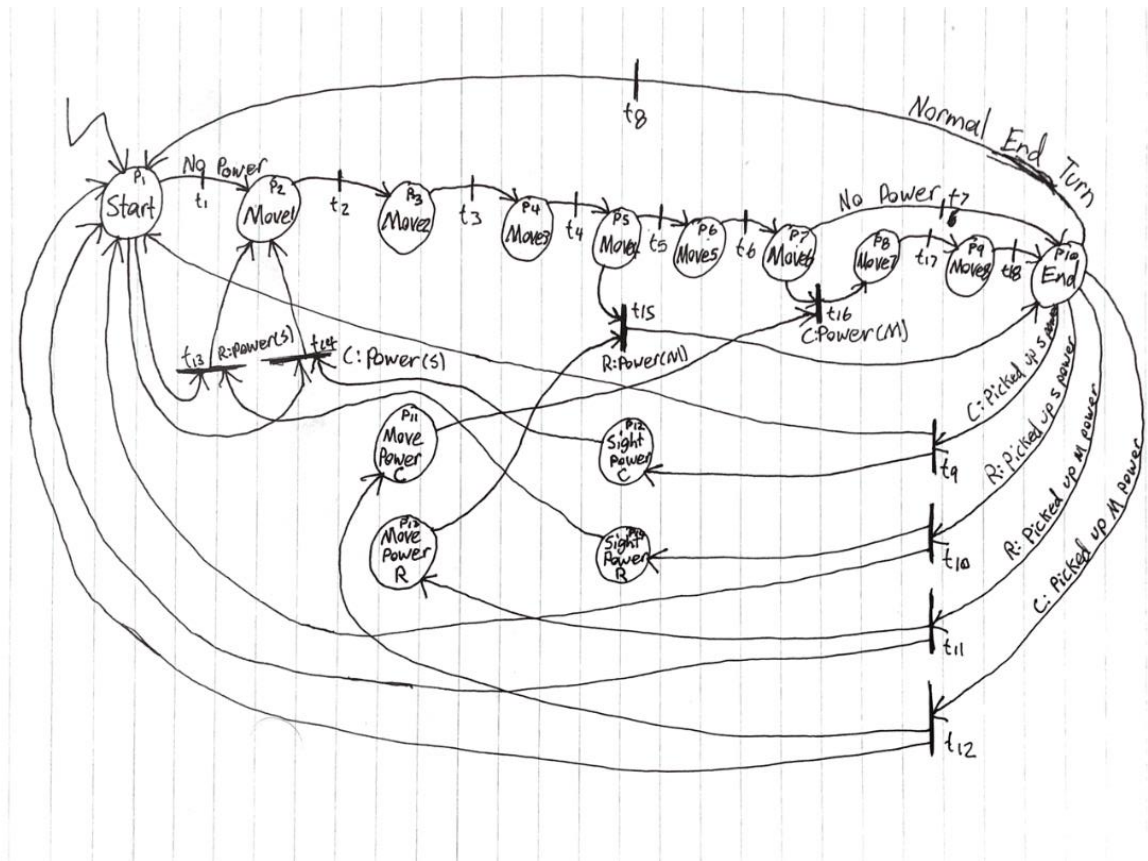 t8
Normal End Turn
P1
Start
No Power
t1
P2
Move1
t2
P3
Move2
t3
P4
Move3
t4
P5
Move4
t5
P6
Move5
t6
P7
Move6
No Power
t7
P8
Move7
t17
P9
Move8
t18
P10
End
t13
R:Power(S)
t14
C:Power(S)
t15
R:Power(M)
t16
C:Power(M)
P11
Move
Power
C
P12
Sight
Power
C
C:Picked up S power
t9
Move
Power
R
Sight
Power
R
R:Picked up S power
t10
R:Picked up M power
t11
C:Picked up M power
t12